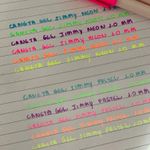 CANETA GEL Jimmy NEON 1.0 MM
CANETA GEL Jimmy NEON 1.0 MM
CANETA GEL Jimmy NEON 1.0 MM
CANETA GEL Jimmy NEON 1.0 MM
CANETA GEL Jimmy NEON 1.0 MM
CANETA GEL Jimmy PASTEL 1.0 MM
CANETA GEL Jimmy PASTEL 1.0 MM
CANETA GEL Jimmy PASTEL 1.0 MM
CANETA GEL Jimmy PASTEL 1.0 MM
CANETA GEL Jimmy PASTEL 1.0 MM